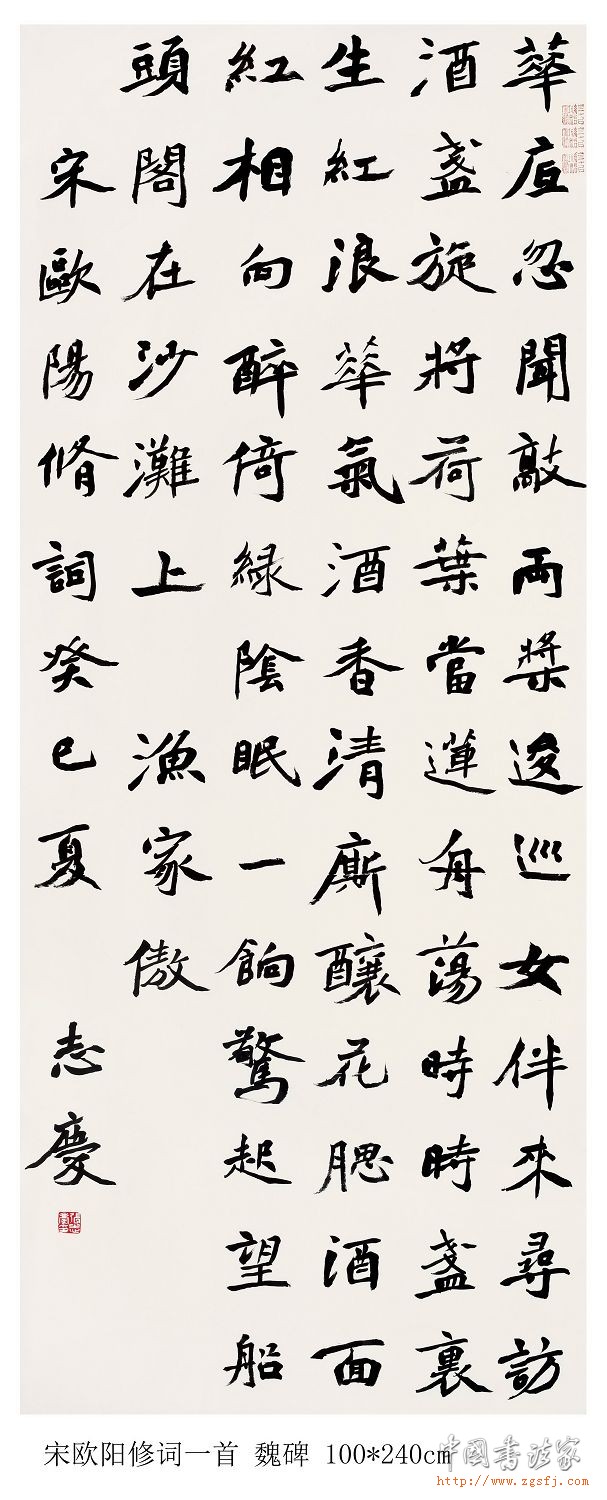 蕐底忽聞敲兩槳逡巡女伴來尋訪
酒盞旋將荷葉當蓮舟蕩時時盞裏
生紅浪蕐氣酒香清廝釀花腮酒面
紅相向醉倚綠陰眠一餉驚起望船
頭閣在沙灘上 漁家傲
宋歐陽脩詞癸巳夏 志慶
宋欧阳修词一首 魏碑 100*240cm
中國書法家
http://www.zgsfj.com